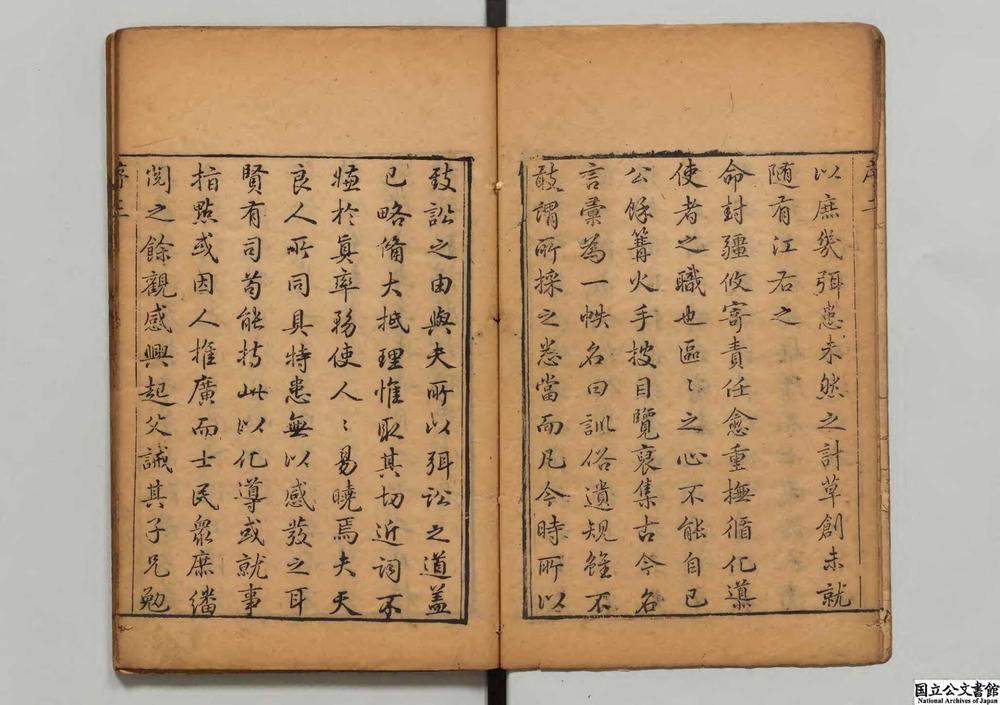 序二
以庶幾弭患未然之計草創未就
隨有江右之
命封疆攸寄責任愈重撫循化導
使者之職也區〻之心不能自已
公餘篝火手披目覽裒集古今名
言彙為一帙名曰訓俗遺規雖不
敢謂所採之悉當而凡今時所以
致訟之由與夫所以弭訟之道盖
已略備大抵理惟取其切近詞不
嫌於真率務使人〻易曉焉夫天
良人所同具特患無以感發之耳
賢有司苟能持此以化導或就事
指點或因人推廣而士民衆庶繙
閱之餘觀感興起父誡其子兄勉
序三
国立公文書館
National Archives of Japan